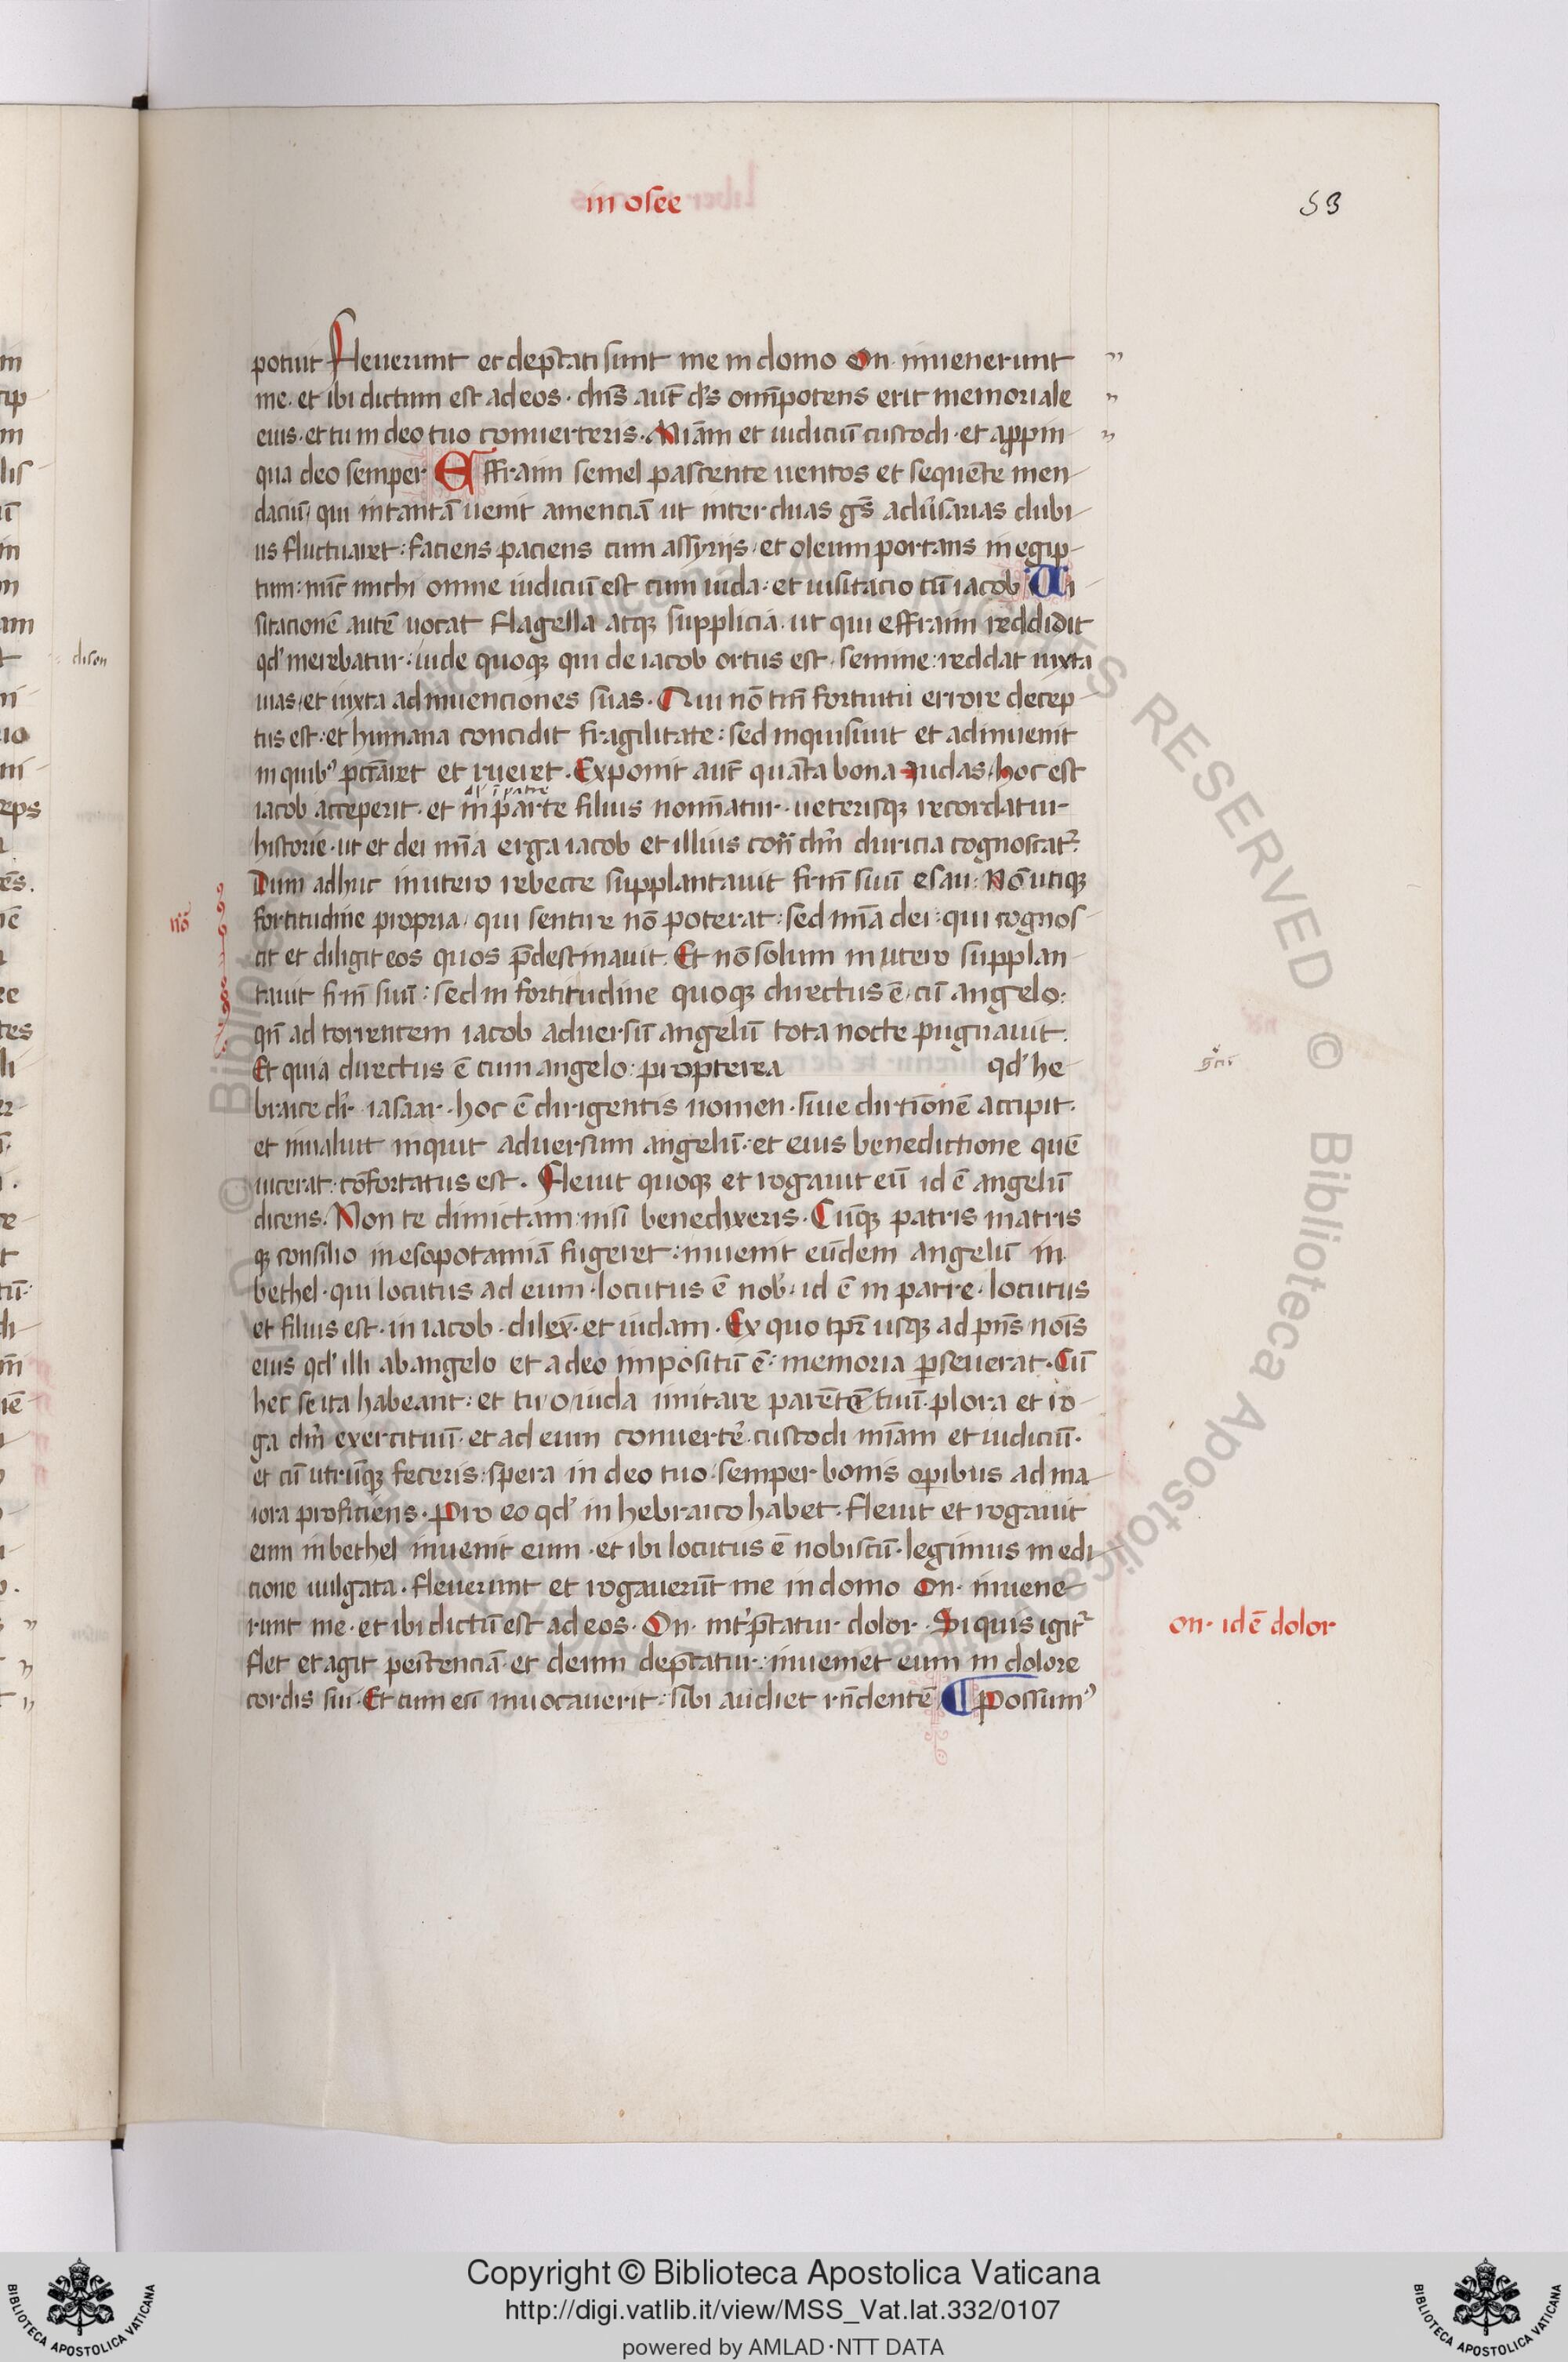 in osee
53
potuit Fleuerunt et dep̄cati sunt me in domo On inuenerunt
me· et ibi dictum est ad eos· dn̄s aut̄ d's omp̄otens erit memoriale
eius· et tu in deo tuo conuerteris· Miām et iudiciū custodi· et appin
qua deo semper Effraim semel pascente uentos et sequēte men
daciū: qui in tantā uenit amenciā ut inter duas gēs aduīsarias dubi
us fluctuaret: faciens paciens cum assyrijs· et oleum portans in egip
tum: nūc michi omne iudiciū est cum iuda: et uisitacio cū iacob Ui
sitacionē autē uocat flagella atqꝫ supplicia· ut qui effraim reddidit
qd' merebatur: iude quoqꝫ qui de iacob ortus est semine: reddat iuxta
uias et iuxta adinuenciones suas· Qui nō tm̄ fortuitū errore decep
tus est: et humana concidit fragilitate: sed inquisiuit et adinuenit
in quibꝰ peccāret et rueret· Exponit aut̄ quāta bona iudas hoc est
al' ī patre
iacob acceperit· et in parte filius nomīatur· ueterisqꝫ recordatur
historie· ut et dei mīa erga iacob et illius con̄ dm̄ duricia cognoscat᷑
Dum adhuc in utero rebecce supplantauit frm̄ suū esau: Nō utiqꝫ
fortitudine propria· qui sentire nō poterat: sed mīa dei: qui cognos
cit et diligit eos quos p̄destinauit: Et nō solum in utero supplan
tauit frm̄ suū: sed in fortitudine quoqꝫ directus ē cū angelo:
qn̄ ad torrentem iacob aduersū angelū tota nocte pugnauit:
Et quia directus ē cum angelo: propterea qd' he
braice dr̄ iasaar· hoc ē dirigentis nomen· siue dirctionē accipit·
et inualuit inquit aduersum angelū: et eius benedictione quē
uicerat: cōfortatus est· Fleuit quoqꝫ et rogauit eū id ē angelū
dicens· Non te dimictam: nisi benedixeris· Cūqꝫ patris matris
qꝫ consilio in esopotamiā fugeret: inuenit eūdem angelū in
bethel· qui locutus ad eum· locutus ē nob'· id ē in patre· locutus
et filius est· in iacob· dilex̄· et iudam· Ex quo tp̄r usqꝫ ad pn̄s nōīs
eius qd' illi ab angelo et a deo impositū ē: memoria pseuerat· Cū
hec se ita habeant: et tu o iuda imitare parētē tuū· plora et ro
ga dm̄ exercituū· et ad eum conuerte᷑ custodi miām et iudiciū·
et cū utrūqꝫ feceris: spera in deo tuo: semper bonis opibus ad ma
iora proficiens· Pro eo qd' in hebraico habet· fleuit et rogauit
eum in bethel inuenit eum· et ibi locutus ē nobiscū· legimus in edi
cione uulgata· fleuerunt et rogauerūt me in domo On· inuene
runt me· et ibi dictū est ad eos· On· int᷑p̄tatur dolor· Si quis igit᷑
flet et agit penītenciā et deum dep̄catur: inueniet eum in dolore
cordis sui· Et cum eū inuocauerit: sibi audiet rn̄dentē ¶ Possumꝰ
nō
on· id ē dolor
Copyright © Biblioteca Apostolica Vaticana
http://digi.vatlib.it/view/MSS_Vat.lat.332/0107
powered by AMLAD·NTT DATA